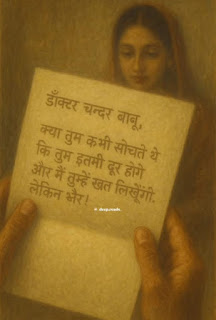 डॉक्टर चन्दर बाबू,
क्या तुम कभी सोचते थे
कि तुम इतमी दूर होगे
और मैं तुम्हें खत लिखूँगी.
लेकिन ख़ैर!